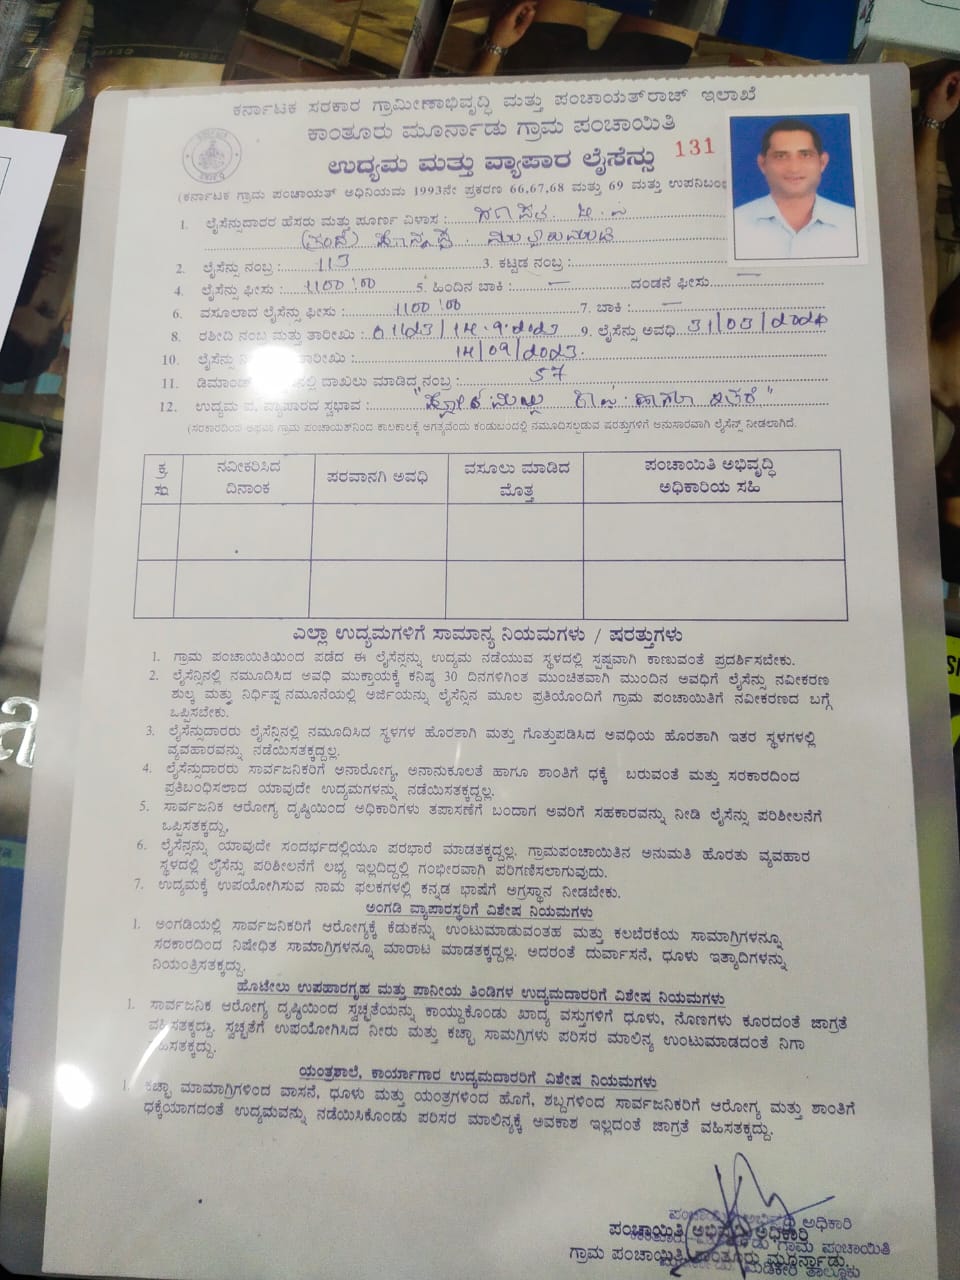 ಕರ್ನಾಟಕ ಸರಕಾರ ಗ್ರಾಮೀಣಾಭಿವೃದ್ಧಿ ಮತ್ತು ಪಂಚಾಯತ್‌ರಾಜ್ ಇಲಾಖೆ
ಕಾಂತೂರು ಮೂರ್ನಾಡು ಗ್ರಾಮ ಪಂಚಾಯಿತಿ
ಉದ್ಯಮ ಮತ್ತು ವ್ಯಾಪಾರ ಲೈಸೆನ್ಸು 131
(ಕರ್ನಾಟಕ ಗ್ರಾಮ ಪಂಚಾಯತ್ ಅಧಿನಿಯಮ 1993ನೇ ಪ್ರಕರಣ 66,67,68 ಮತ್ತು 69 ಮತ್ತು ಉಪನಿಬಂಧ
1. ಲೈಸೆನ್ಸುದಾರರ ಹೆಸರು ಮತ್ತು ಪೂರ್ಣ ವಿಳಾಸ :
2. ಲೈಸೆನ್ಸು ನಂಬ್ರ : 113 3. ಕಟ್ಟಡ ನಂಬ್ರ :
4. ಲೈಸೆನ್ಸು ಫೀಸು : 1100.00 5. ಹಿಂದಿನ ಬಾಕಿ : — ದಂಡನೆ ಫೀಸು —
6. ವಸೂಲಾದ ಲೈಸೆನ್ಸು ಫೀಸು : 1100.00 7. ಬಾಕಿ : —
8. ರಶೀದಿ ನಂಬ್ರ ಮತ್ತು ತಾರೀಖು : 14.9.2023 9. ಲೈಸೆನ್ಸು ಅವಧಿ 31/03/2024
10. ಲೈಸೆನ್ಸು ತಾರೀಖು : 14/09/2023.
11. ಡಿಮಾಂಡ್ ದಾಖಲು ಮಾಡಿದ ನಂಬ್ರ : 57
12. ಉದ್ಯಮ ವ, ವ್ಯಾಪಾರದ ಸ್ವಭಾವ :
(ಸರಕಾರದಿಂದ ಅಥವಾ ಗ್ರಾಮ ಪಂಚಾಯತ್‌ನಿಂದ ಕಾಲಕಾಲಕ್ಕೆ ಅಗತ್ಯವೆಂದು ಕಂಡುಬಂದಲ್ಲಿ ನಮೂದಿಸಲ್ಪಡುವ ಷರತ್ತುಗಳಿಗೆ ಅನುಸಾರವಾಗಿ ಲೈಸೆನ್ಸ್ ನೀಡಲಾಗಿದೆ.
ಕ್ರ. ಸಂ. ನವೀಕರಿಸಿದ ದಿನಾಂಕ ಪರವಾನಗಿ ಅವಧಿ ವಸೂಲು ಮಾಡಿದ ಮೊತ್ತ ಪಂಚಾಯಿತಿ ಅಭಿವೃದ್ಧಿ ಅಧಿಕಾರಿಯ ಸಹಿ
ಎಲ್ಲಾ ಉದ್ಯಮಗಳಿಗೆ ಸಾಮಾನ್ಯ ನಿಯಮಗಳು / ಷರತ್ತುಗಳು
1. ಗ್ರಾಮ ಪಂಚಾಯಿತಿಯಿಂದ ಪಡೆದ ಈ ಲೈಸೆನ್ಸನ್ನು ಉದ್ಯಮ ನಡೆಯುವ ಸ್ಥಳದಲ್ಲಿ ಸ್ಪಷ್ಟವಾಗಿ ಕಾಣುವಂತೆ ಪ್ರದರ್ಶಿಸಬೇಕು.
2. ಲೈಸೆನ್ಸಿನಲ್ಲಿ ನಮೂದಿಸಿದ ಅವಧಿ ಮುಕ್ತಾಯಕ್ಕೆ ಕನಿಷ್ಠ 30 ದಿನಗಳಿಗಿಂತ ಮುಂಚಿತವಾಗಿ ಮುಂದಿನ ಅವಧಿಗೆ ಲೈಸೆನ್ಸು ನವೀಕರಣ
ಶುಲ್ಕ ಮತ್ತು ನಿರ್ಧಿಷ್ಟ ನಮೂನೆಯಲ್ಲಿ ಅರ್ಜಿಯನ್ನು ಲೈಸೆನ್ಸಿನ ಮೂಲ ಪ್ರತಿಯೊಂದಿಗೆ ಗ್ರಾಮ ಪಂಚಾಯಿತಿಗೆ ನವೀಕರಣದ ಬಗ್ಗೆ
ಒಪ್ಪಿಸಬೇಕು.
3. ಲೈಸೆನ್ಸುದಾರರು ಲೈಸೆನ್ಸಿನಲ್ಲಿ ನಮೂದಿಸಿದ ಸ್ಥಳಗಳ ಹೊರತಾಗಿ ಮತ್ತು ಗೊತ್ತುಪಡಿಸಿದ ಅವಧಿಯ ಹೊರತಾಗಿ ಇತರ ಸ್ಥಳಗಳಲ್ಲಿ
ವ್ಯವಹಾರವನ್ನು ನಡೆಯಿಸತಕ್ಕದ್ದಲ್ಲ.
4. ಲೈಸೆನ್ಸುದಾರರು ಸಾರ್ವಜನಿಕರಿಗೆ ಅನಾರೋಗ್ಯ, ಅನಾನುಕೂಲತೆ ಹಾಗೂ ಶಾಂತಿಗೆ ಧಕ್ಕೆ ಬರುವಂತೆ ಮತ್ತು ಸರಕಾರದಿಂದ
ಪ್ರತಿಬಂಧಿಸಲಾದ ಯಾವುದೇ ಉದ್ಯಮಗಳನ್ನು ನಡೆಯಿಸತಕ್ಕದ್ದಲ್ಲ.
5. ಸಾರ್ವಜನಿಕ ಆರೋಗ್ಯ ದೃಷ್ಠಿಯಿಂದ ಅಧಿಕಾರಿಗಳು ತಪಾಸಣೆಗೆ ಬಂದಾಗ ಅವರಿಗೆ ಸಹಕಾರವನ್ನು ನೀಡಿ ಲೈಸೆನ್ಸು ಪರಿಶೀಲನೆಗೆ
ಒಪ್ಪಿಸತಕ್ಕದ್ದು.
6. ಲೈಸೆನ್ಸನ್ನು ಯಾವುದೇ ಸಂದರ್ಭದಲ್ಲಿಯೂ ಪರಭಾರೆ ಮಾಡತಕ್ಕದ್ದಲ್ಲ. ಗ್ರಾಮಪಂಚಾಯಿತಿನ ಅನುಮತಿ ಹೊರತು ವ್ಯವಹಾರ
ಸ್ಥಳದಲ್ಲಿ ಲೈಸೆನ್ಸು ಪರಿಶೀಲನೆಗೆ ಲಭ್ಯ ಇಲ್ಲದಿದ್ದಲ್ಲಿ ಗಂಭೀರವಾಗಿ ಪರಿಗಣಿಸಲಾಗುವುದು.
7. ಉದ್ಯಮಕ್ಕೆ ಉಪಯೋಗಿಸುವ ನಾಮ ಫಲಕಗಳಲ್ಲಿ ಕನ್ನಡ ಭಾಷೆಗೆ ಅಗ್ರಸ್ಥಾನ ನೀಡಬೇಕು.
ಅಂಗಡಿ ವ್ಯಾಪಾರಸ್ಥರಿಗೆ ವಿಶೇಷ ನಿಯಮಗಳು
1. ಅಂಗಡಿಯಲ್ಲಿ ಸಾರ್ವಜನಿಕರಿಗೆ ಆರೋಗ್ಯಕ್ಕೆ ಕೆಡುಕನ್ನು ಉಂಟುಮಾಡುವಂತಹ ಮತ್ತು ಕಲಬೆರಕೆಯ ಸಾಮಾಗ್ರಿಗಳನ್ನೂ
ಸರಕಾರದಿಂದ ನಿಷೇಧಿತ ಸಾಮಾಗ್ರಿಗಳನ್ನೂ ಮಾರಾಟ ಮಾಡತಕ್ಕದ್ದಲ್ಲ. ಅದರಂತೆ ದುರ್ವಾಸನೆ, ಧೂಳು ಇತ್ಯಾದಿಗಳನ್ನು
ನಿಯಂತ್ರಿಸತಕ್ಕದ್ದು.
ಹೊಟೇಲು ಉಪಹಾರಗೃಹ ಮತ್ತು ಪಾನೀಯ ತಿಂಡಿಗಳ ಉದ್ಯಮದಾರರಿಗೆ ವಿಶೇಷ ನಿಯಮಗಳು
1. ಸಾರ್ವಜನಿಕ ಆರೋಗ್ಯ ದೃಷ್ಠಿಯಿಂದ ಸ್ವಚ್ಛತೆಯನ್ನು ಕಾಯ್ದುಕೊಂಡು ಖಾದ್ಯ ವಸ್ತುಗಳಿಗೆ ಧೂಳು, ನೊಣಗಳು ಕೂರದಂತೆ ಜಾಗ್ರತೆ
ವಹಿಸತಕ್ಕದ್ದು. ಸ್ವಚ್ಛತೆಗೆ ಉಪಯೋಗಿಸಿದ ನೀರು ಮತ್ತು ಕಚ್ಛಾ ಸಾಮಗ್ರಿಗಳು ಪರಿಸರ ಮಾಲಿನ್ಯ ಉಂಟುಮಾಡದಂತೆ ನಿಗಾ
ವಹಿಸತಕ್ಕದ್ದು.
ಯಂತ್ರಶಾಲೆ, ಕಾರ್ಯಾಗಾರ ಉದ್ಯಮದಾರರಿಗೆ ವಿಶೇಷ ನಿಯಮಗಳು
1. ಕಚ್ಛಾ ಮಾಮಾಗ್ರಿಗಳಿಂದ ವಾಸನೆ, ಧೂಳು ಮತ್ತು ಯಂತ್ರಗಳಿಂದ ಹೊಗೆ, ಶಬ್ದಗಳಿಂದ ಸಾರ್ವಜನಿಕರಿಗೆ ಆರೋಗ್ಯ ಮತ್ತು ಶಾಂತಿಗೆ
ಧಕ್ಕೆಯಾಗದಂತೆ ಉದ್ಯಮವನ್ನು ನಡೆಯಿಸಿಕೊಂಡು ಪರಿಸರ ಮಾಲಿನ್ಯಕ್ಕೆ ಅವಕಾಶ ಇಲ್ಲದಂತೆ ಜಾಗ್ರತೆ ವಹಿಸತಕ್ಕದ್ದು.
ಪಂಚಾಯಿತಿ ಅಭಿವೃದ್ಧಿ ಅಧಿಕಾರಿ
ಗ್ರಾಮ ಪಂಚಾಯಿತಿ, ಕಾಂತೂರು ಮೂರ್ನಾಡು.